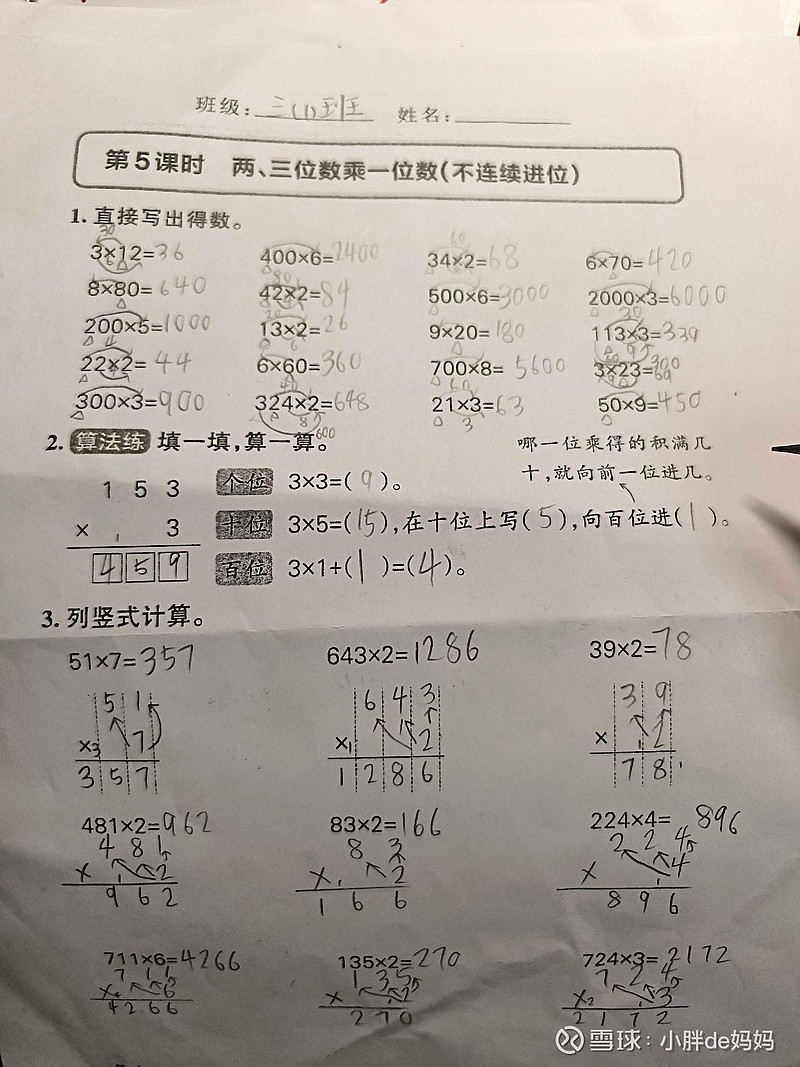 班级：三(1)班 姓名：
第5课时 两、三位数乘一位数(不连续进位)
1. 直接写出得数。
3×12=36 400×6=2400 34×2=68 6×70=420
8×80=640 42×2=84 500×6=3000 2000×3=6000
200×5=1000 13×2=26 9×20=180 113×3=339
22×2=44 6×60=360 700×8=5600 3×23=69
300×3=900 324×2=648 21×3=63 50×9=450
2. 算法练 填一填，算一算。
哪一位乘得的积满几
十，就向前一位进几。
1 5 3
× 1 3
4 5 9
个位 3×3=(9)。
十位 3×5=(15)，在十位上写(5)，向百位进(1)。
百位 3×1+(1)=(4)。
3. 列竖式计算。
51×7=357 643×2=1286 39×2=78
5 1 6 4 3 3 9
×3 7 ×1 2 × 1 2
3 5 7 1 2 8 6 7 8
481×2=962 83×2=166 224×4=896
4 8 1 8 3 2 2 4
× 1 2 × 1 2 × 1 4
9 6 2 1 6 6 8 9 6
711×6=4266 135×2=270 724×3=2172
7 1 1 1 3 5 7 2 4
×4 6 × 1 2 ×2 1 3
4 2 6 6 2 7 0 2 1 7 2
雪球：小胖de妈妈